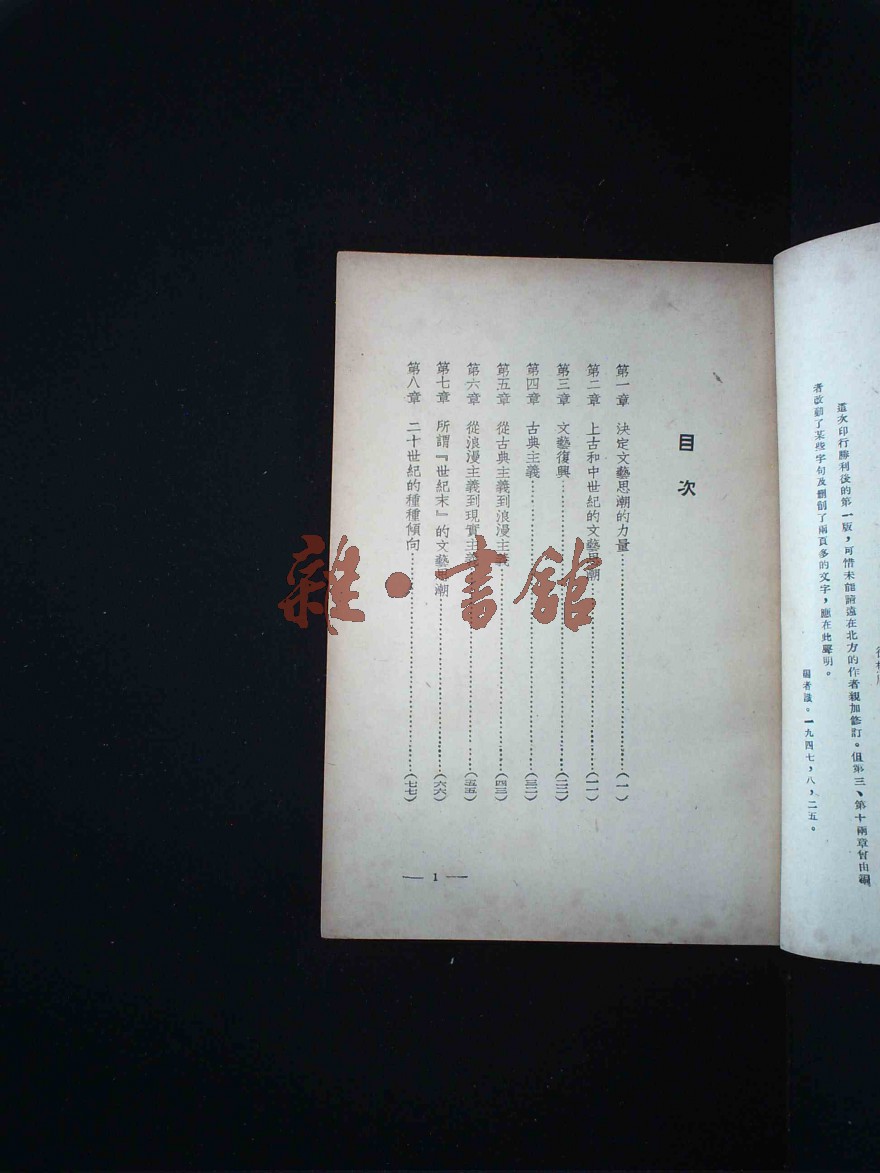 這次印行勝利後的第一版，可惜未能請遠在北方的作者親加修訂。但第三、第十兩章曾由編
者改動了某些字句及刪創了兩頁多的文字，應在此聲明。
編者識。一九四七，八，二五。
目次
第一章 決定文藝思潮的力量…………(一)
第二章 上古和中世紀的文藝思潮…………(一一)
第三章 文藝復興…………(二二)
第四章 古典主義…………(三二)
第五章 從古典主義到浪漫主義…………(四三)
第六章 從浪漫主義到現實主義…………(五五)
第七章 所謂『世紀末』的文藝思潮…………(六六)
第八章 二十世紀的種種傾向…………(七七)
— 1 —
雜·書館